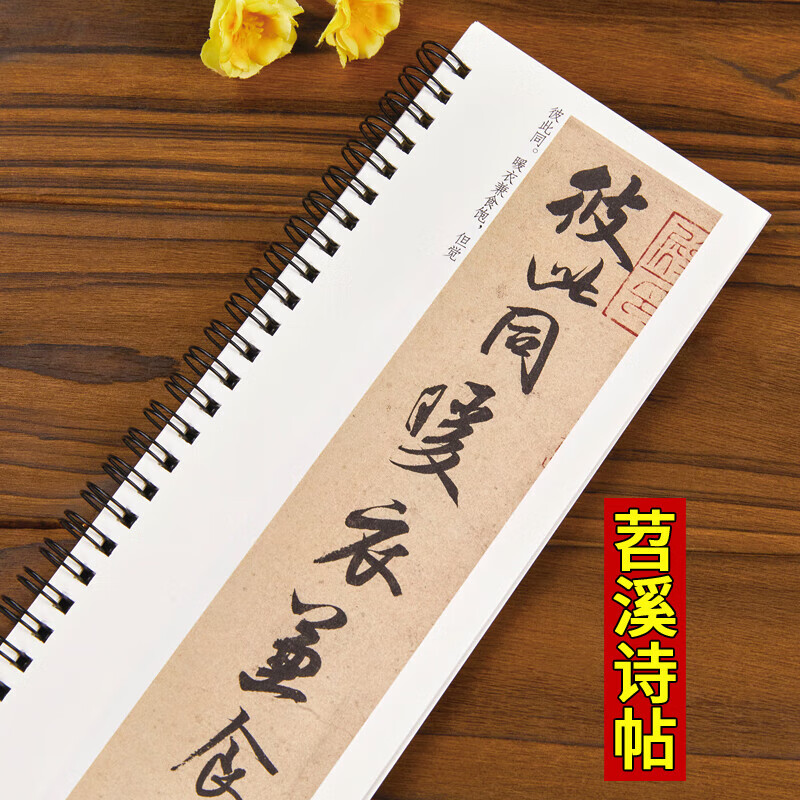 彼此同。暖衣兼食饱，但觉
彼此同暖衣兼食
苕溪诗帖